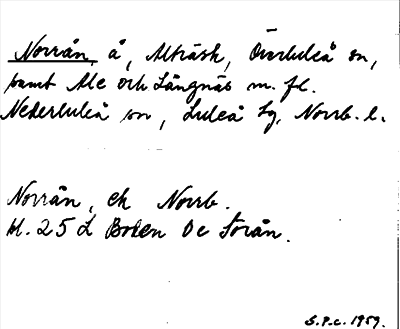 Norrån, å, Alträsk, Överluleå sn,
samt Ale och Långnäs m. fl.
Nederluleå sn, Luleå tg, Norrb. l.
Norrån, ek Norrb.
bl. 25 L Boden Oc Torån.
S.P.c. 1959.